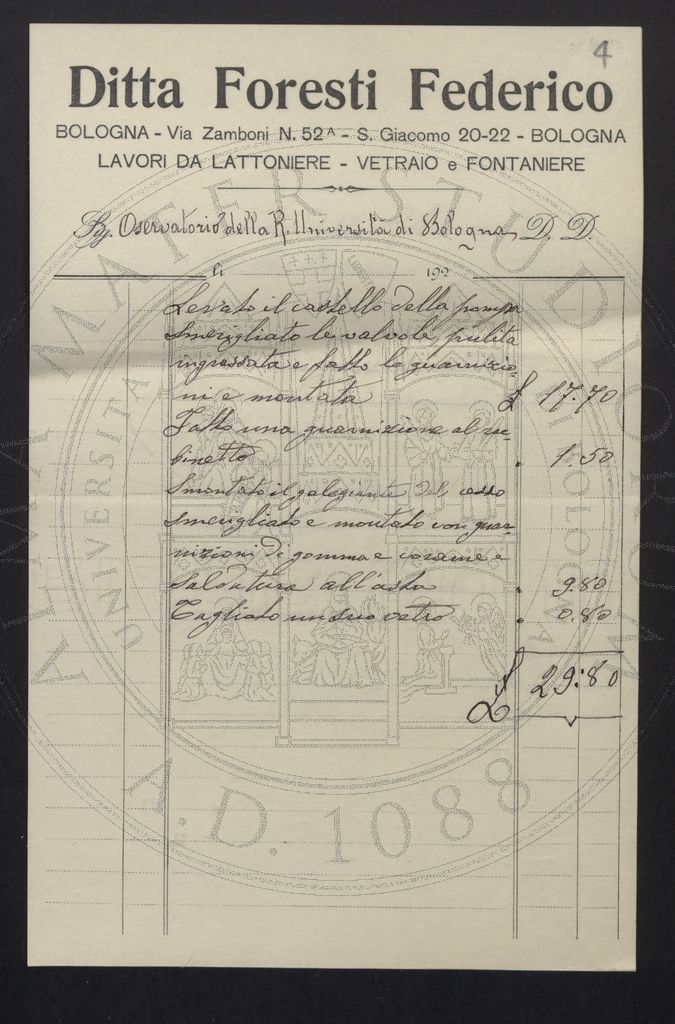 4
Ditta Foresti Federico
BOLOGNA - Via Zamboni N. 52A - S. Giacomo 20-22 - BOLOGNA
LAVORI DA LATTONIERE - VETRAIO e FONTANIERE
Sig. Oservatorio della R. Università di Bologna D. D.
li 192
Levato il castello della pompa
smerigliato le valvole, pulita
ingrassata e fatto le guarnizio=
ni e montata £ 17.70
Fatto una guarnizione al ru=
binetto " 1.50
Smontato il galegiante del cesso
smerigliato e montato con guar=
nizioni di gomma e corame e
saldatura all'asta " 9.80
Tagliato un suo vetro " 0.80
£ 29:80
ALMA MATER STUDIORUM
UNIVERSITA BOLOGNA
A.D. 1088